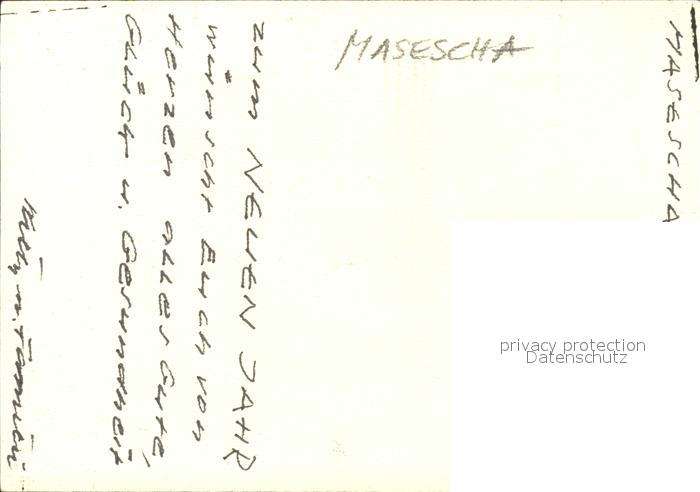 MASESCHA
MASESCHA
ZUM NEUEN JAHR
wünscht Euch von
Herzen alles Gute,
Glück u. Gesundheit
u. Familie
privacy protection
Datenschutz